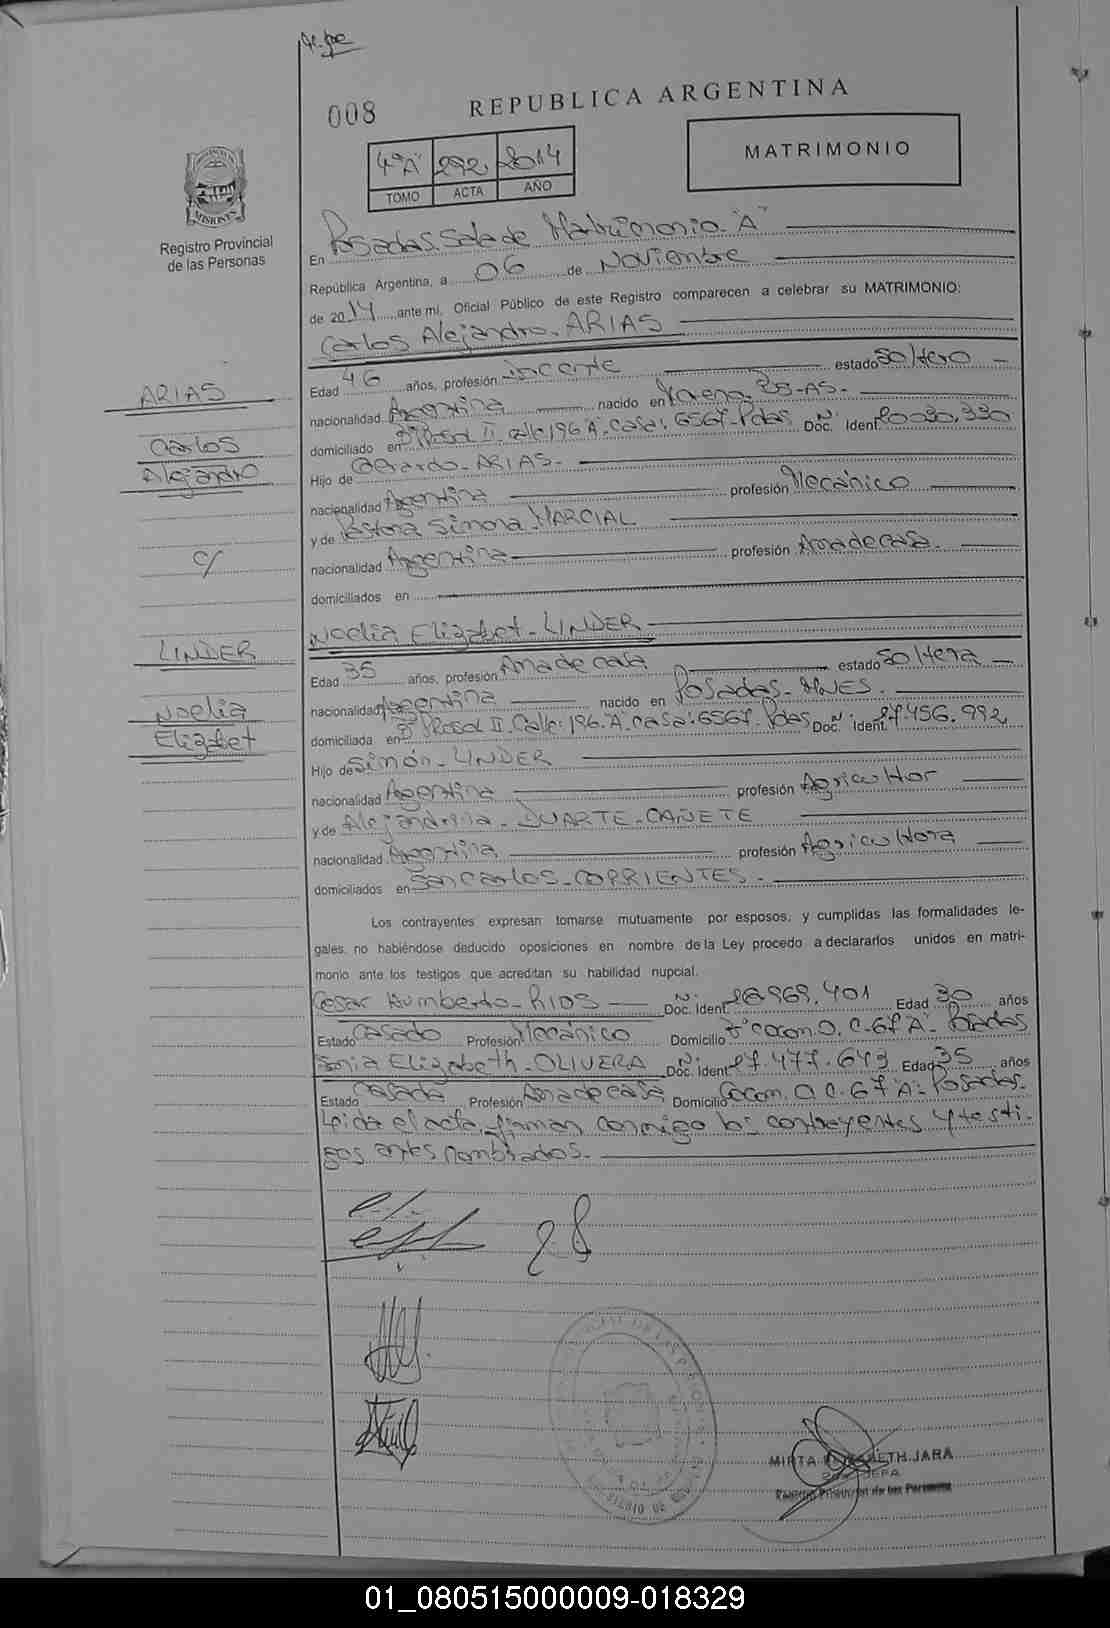 008
REPUBLICA ARGENTINA
4º"A" 292 2014
TOMO ACTA AÑO
MATRIMONIO
MISIONES
Registro Provincial
de las Personas
En Posadas. Sala de Matrimonio "A"
República Argentina, a 06 de Noviembre
de 2014 ante mí, Oficial Público de este Registro comparecen a celebrar su MATRIMONIO:
Carlos Alejandro - ARIAS
ARIAS
Carlos
Alejandro
c/
LINDER
Noelia
Elizabet
Edad 46 años, profesión Docente estado Soltero
nacionalidad Argentina nacido en Moreno. BS-AS-
domiciliado en Bº Rosal II. Calle 196 "A". Casa: 6567 - Pdas. Doc. Nº Ident. 20.030.330
Hijo de Gerardo - ARIAS -
nacionalidad Argentina profesión Mecánico
y de Pastora Simona MARCIAL
nacionalidad Argentina profesión Ama de casa.
domiciliados en
Noelia Elizabet - LINDER
Edad 35 años, profesión Ama de casa estado Soltera
nacionalidad Argentina nacido en Posadas - MNES.
domiciliada en Bº Rosal II. Calle: 196 "A". Casa: 6567. Pdas Doc. Nº Ident. 27.456.992
Hijo de Simón - LINDER
nacionalidad Argentina profesión Agricultor
y de Alejandrina - DUARTE - CAÑETE
nacionalidad Argentina profesión Agricultora
domiciliados en San Carlos - CORRIENTES.
Los contrayentes expresan tomarse mutuamente por esposos, y cumplidas las formalidades le-
gales, no habiéndose deducido oposiciones en nombre de la Ley procedo a declararlos unidos en matri-
monio ante los testigos que acreditan su habilidad nupcial.
Cesar Humberto - RIOS Doc. Nº Ident. 26.969.401 Edad 30 años
Estado Casado Profesión Mecánico Domicilio Bº Cocom. O. C. 67 "A" - Posadas
Sonia Elizabeth - OLIVERA Doc. Nº Ident. 27.477.649 Edad 35 años
Estado Casada Profesión Ama de casa Domicilio Cocom. O C. 67 "A" - Posadas.
Leída el acta, firman conmigo los contrayentes y testi-
gos antes nombrados.
MIRTA JARA
JEFA
Registro Provincial de las Personas
01_080515000009-018329